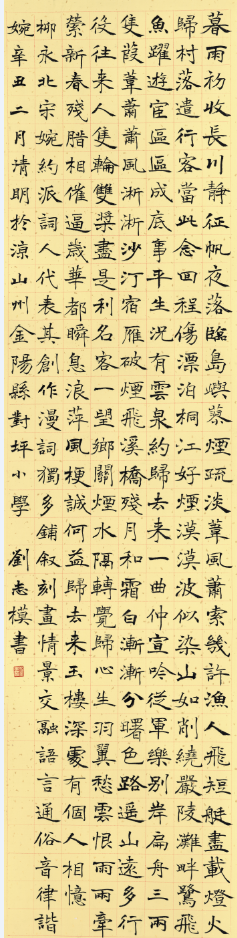 暮雨初收長川靜征帆夜落臨島嶼蓼煙疏淡葦風蕭索幾許漁人飛短艇盡載燈火
歸村落遣行客當此念回程傷漂泊桐江好煙漠漠波似染山如削繞嚴陵灘畔鷺飛
魚躍遊宦區區成底事平生況有雲泉約歸去來一曲仲宣吟從軍樂別岸扁舟三兩
隻葭葦蕭蕭風淅淅沙汀宿雁破煙飛溪橋殘月和霜白漸漸分曙色路遙山遠多行
役往來人隻輪雙槳盡是利名客一望鄉關煙水隔轉覺歸心生羽翼愁雲恨雨兩牽
縈新春殘臘相催逼歲華都瞬息浪萍風梗誠何益歸去來玉樓深處有個人相憶
柳永北宋婉約派詞人代表其創作漫詞獨多鋪敘刻畫情景交融語言通俗音律諧
婉辛丑二月清明於涼山州金陽縣對坪小學 劉志模書